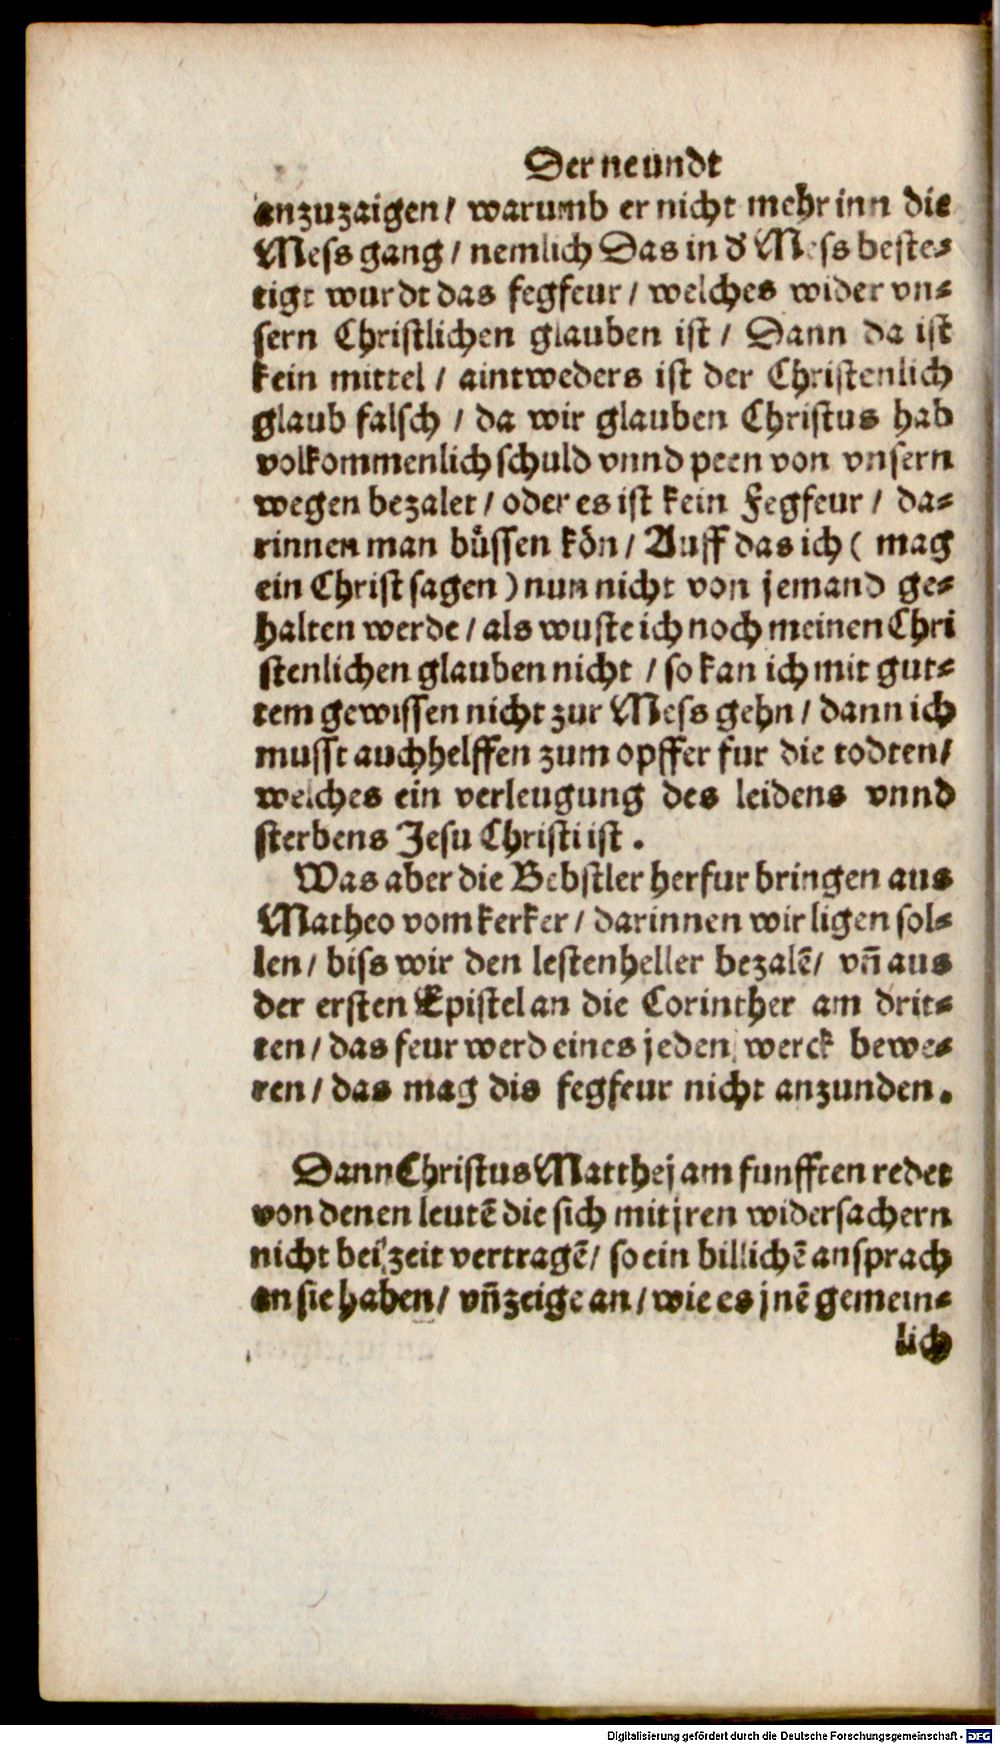 Der neundt
anzuzaigen / warumb er nicht mehr inn die
Mess gang / nemlich Das in d' Mess beste⸗
tigt wurdt das fegfeur / welches wider vn⸗
sern Christlichen glauben ist / Dann da ist
kein mittel / aintweders ist der Christenlich
glaub falsch / da wir glauben Christus hab
volkommenlich schuld vnnd peen von vnsern
wegen bezalet / oder es ist kein Fegfeur / da⸗
rinnen man buͤssen koͤn / Auff das ich ( mag
ein Christ sagen ) nun nicht von jemand ge⸗
halten werde / als wuste ich noch meinen Chri
stenlichen glauben nicht / so kan ich mit gut⸗
tem gewissen nicht zur Mess gehn / dann ich
musst auch helffen zum opffer fur die todten /
welches ein verleugung des leidens vnnd
sterbens Jesu Christi ist .
Was aber die Bebstler herfur bringen aus
Matheo vom kerker / darinnen wir ligen sol⸗
len / biss wir den lesten heller bezalē / vn̄ aus
der ersten Epistel an die Corinther am drit⸗
ten / das feur werd eines jeden werck bewe⸗
ren / das mag dis fegfeur nicht anzunden .
Dann Christus Matthej am funfften redet
von denen leutē die sich mit jren widersachern
nicht bei zeit vertragē / so ein billichē ansprach
an sie haben / vn̄ zeige an / wie es jnē gemein⸗
lich
Digitalisierung gefördert durch die Deutsche Forschungsgemeinschaft - DFG